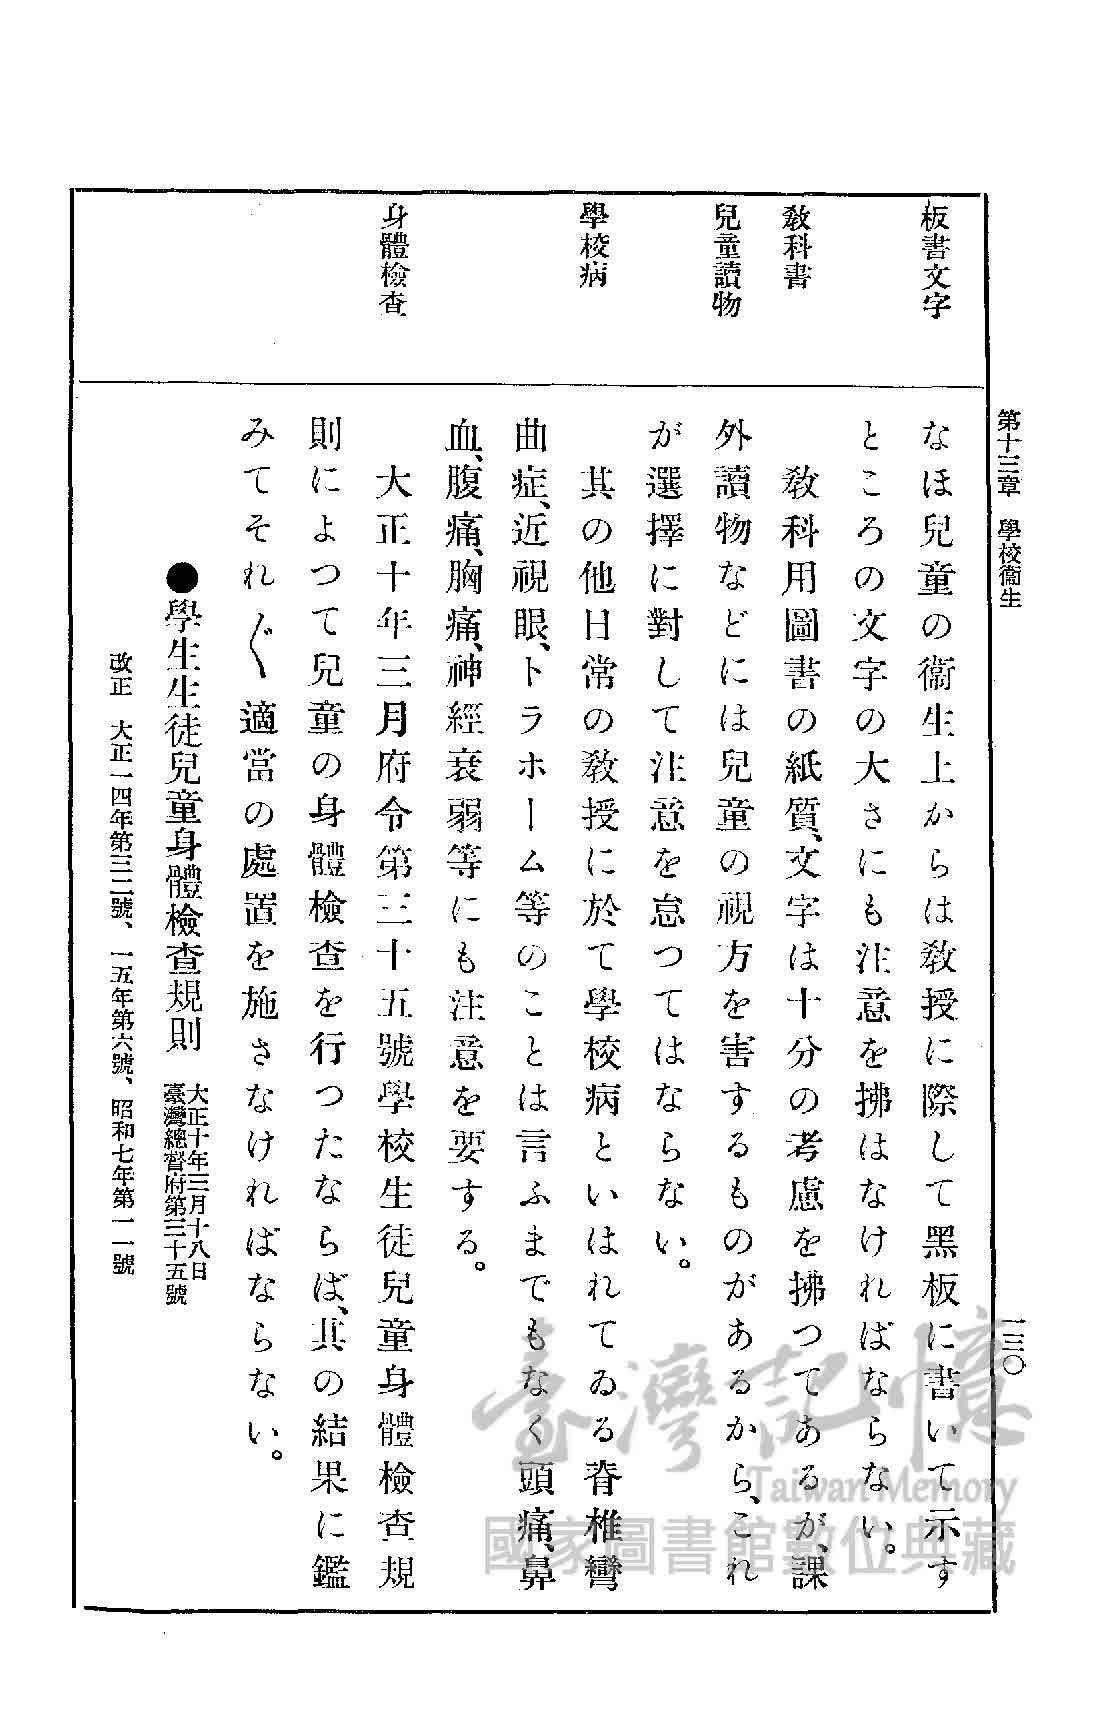 第十三章　學校衞生
一三〇
板書文字
なほ兒童の衞生上からは敎授に際して黑板に書いて示す
ところの文字の大さにも注意を拂はなければならない。
敎科書
敎科用圖書の紙質、文字は十分の考慮を拂つてあるが、課
兒童讀物
外讀物などには兒童の視方を害するものがあるから、これ
が選擇に對して注意を怠つてはならない。
學校病
其の他日常の敎授に於て學校病といはれてゐる脊椎彎
曲症、近視眼、トラホーム等のことは言ふまでもなく頭痛、鼻
血、腹痛、胸痛、神經衰弱等にも注意を要する。
身體檢查
大正十年三月府令第三十五號學校生徒兒童身體檢查規
則によつて兒童の身體檢查を行つたならば、其の結果に鑑
みてそれ〲適當の處置を施さなければならない。
●學生生徒兒童身體檢查規則
大正十年三月十八日
臺灣總督府第三十五號
改正　大正一四年第三二號、一五年第六號、昭和七年第一一號
臺灣記憶
Taiwan Memory
國家圖書館數位典藏